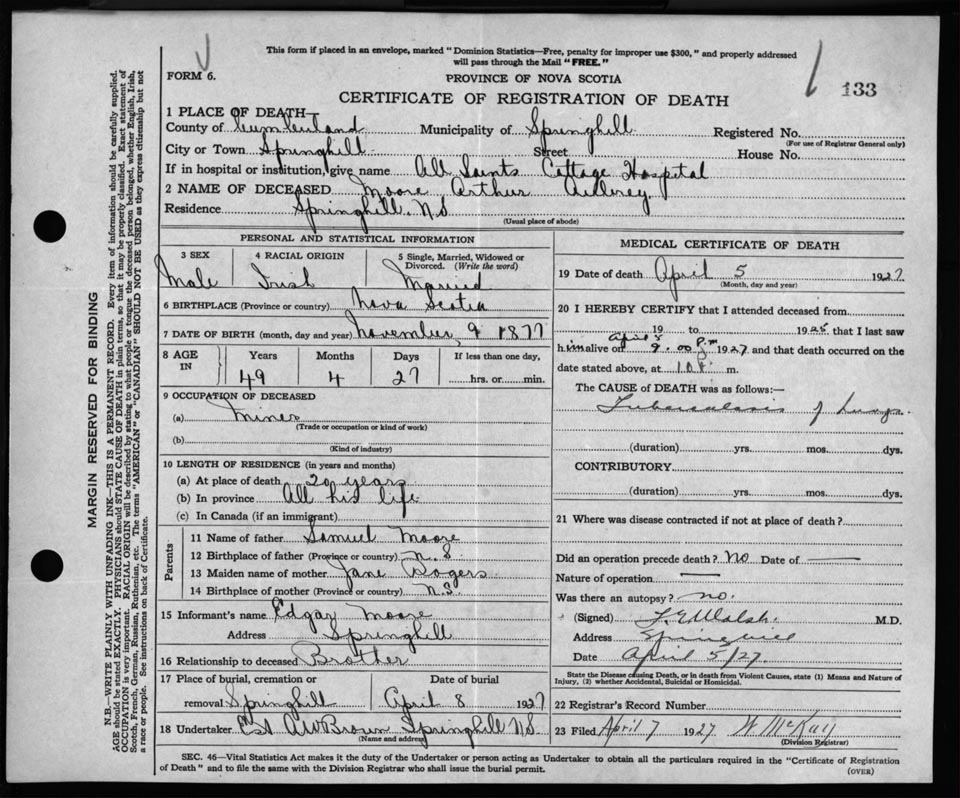 This form if placed in an envelope, marked "Dominion Statistics—Free, penalty for improper use $300," and properly addressed
will pass through the Mail "FREE."
FORM 6.
PROVINCE OF NOVA SCOTIA
133
CERTIFICATE OF REGISTRATION OF DEATH
1 PLACE OF DEATH
County of Cumberland Municipality of Springhill Registered No.
(For use of Registrar General only)
City or Town Springhill Street House No.
If in hospital or institution, give name All Saints Cottage Hospital
2 NAME OF DECEASED Moore Arthur
Residence Springhill N.S
(Usual place of abode)
PERSONAL AND STATISTICAL INFORMATION
3 SEX 4 RACIAL ORIGIN 5 Single, Married, Widowed or
Divorced. (Write the word)
Male Irish Married
6 BIRTHPLACE (Province or country) Nova Scotia
7 DATE OF BIRTH (month, day and year) November 9 1877
8 AGE IN Years Months Days If less than one day,
49 4 27 hrs. or min.
9 OCCUPATION OF DECEASED
(a) Miner
(Trade or occupation or kind of work)
(b)
(Kind of industry)
10 LENGTH OF RESIDENCE (in years and months)
(a) At place of death 20 years
(b) In province All his life
(c) In Canada (if an immigrant)
Parents
11 Name of father Samuel Moore
12 Birthplace of father (Province or country) N.S
13 Maiden name of mother Jane Rogers
14 Birthplace of mother (Province or country) N.S.
15 Informant's name Edgar Moore
Address Springhill
16 Relationship to deceased Brother
17 Place of burial, cremation or Date of burial
removal Springhill April 8 1927
18 Undertaker Est A W Brown Springhill N S
(Name and address)
MEDICAL CERTIFICATE OF DEATH
19 Date of death April 5 1927
(Month, day and year)
20 I HEREBY CERTIFY that I attended deceased from
19 to 1925 that I last saw
him alive on April 5 9.00 P.m 1927 and that death occurred on the
date stated above, at m.
The CAUSE of DEATH was as follows:—
Tuberculosis of Lungs.
(duration) yrs. mos. dys.
CONTRIBUTORY
(duration) yrs. mos. dys.
21 Where was disease contracted if not at place of death?
Did an operation precede death? No Date of
Nature of operation
Was there an autopsy? no.
(Signed) Walsh. M.D.
Address Springhill
Date April 5/27.
State the Disease causing Death, or in death from Violent Causes, state (1) Means and Nature of
Injury, (2) whether Accidental, Suicidal or Homicidal.
22 Registrar's Record Number
23 Filed April 7 1927 W McKay
(Division Registrar)
SEC. 46—Vital Statistics Act makes it the duty of the Undertaker or person acting as Undertaker to obtain all the particulars required in the "Certificate of Registration
of Death" and to file the same with the Division Registrar who shall issue the burial permit. (OVER)
MARGIN RESERVED FOR BINDING
N.B.—WRITE PLAINLY WITH UNFADING INK—THIS IS A PERMANENT RECORD. Every item of information should be carefully supplied.
AGE should be stated EXACTLY. PHYSICIANS should STATE CAUSE OF DEATH in plain terms, so that it may be properly classified. Exact statement of
OCCUPATION is very important. RACIAL ORIGIN will be described by stating to what people or tongue the deceased person belonged, whether English, Irish,
Scotch, French, German, Russian, Ruthenian, etc. The terms "AMERICAN" or "CANADIAN" SHOULD NOT BE USED as they express citizenship but not
a race or people. See instructions on back of Certificate.